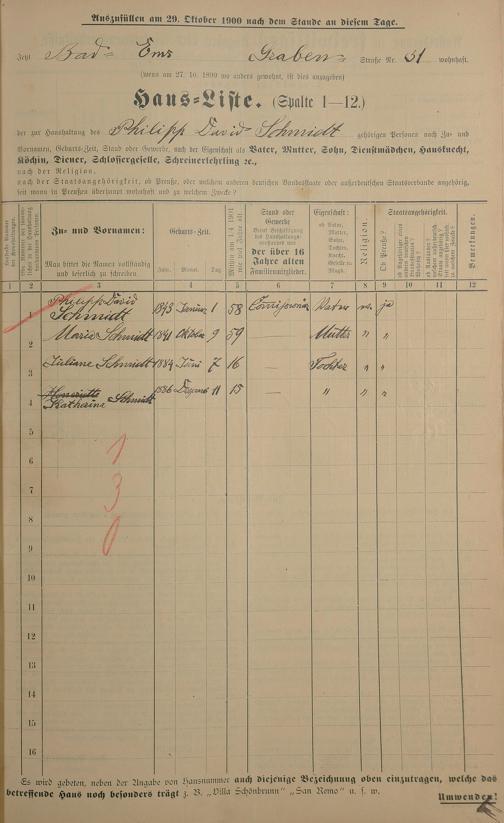 Auszufüllen am 29. Oktober 1900 nach dem Stande an diesem Tage.
Jetzt Bad= Ems Graben= Straße Nr. 51 wohnhaft.
(wenn am 27. 10. 1899 wo anders gewohnt, ist dies anzugeben)
Haus=Liste. (Spalte 1—12.)
der zur Haushaltung des Philipp David Schmidt gehörigen Personen nach Zu= und
Vornamen, Geburts=Zeit, Stand oder Gewerbe, nach der Eigenschaft als Vater, Mutter, Sohn, Dienstmädchen, Hausknecht,
Köchin, Diener, Schlossergeselle, Schreinerlehrling ꝛc.,
nach der Religion,
nach der Staatsangehörigkeit, ob Preuße, oder welchem anderen deutschen Bundesstaate oder außerdeutschen Staatsverbande angehörig,
seit wann in Preußen überhaupt wohnhaft und zu welchem Zwecke?
Zu= und Vornamen:
Man bittet die Namen vollständig
und leserlich zu schreiben.
Geburts=Zeit.
Jahr. Monat. Tag
Mithin am 1/4 1901
wie viel Jahre alt.
Stand oder
Gewerbe
der über 16
Jahre alten
Familienmitglieder.
Eigenschaft:
ob Vater,
Mutter,
Sohn,
Tochter,
Knecht,
Geselle u.
Magd.
Religion.
Staatsangehörigkeit.
Ob Preuße?
Bemerkungen.
1 2 3 4 4 5 6 7 8 9 10 11 12
1 Philipp David Schmidt 1843 Januar 1 58 Vater ev. ja
2 Marie Schmidt 1841 Oktober 9 59 — Mutter " "
3 Juliane Schmidt 1884 Juni 7 16 — Tochter " "
4 Henriette Katharine Schmidt 1886 11 15 — " " "
5
6
7
8
9
10
11
12
13
14
15
16
1
3
0
Es wird gebeten, neben der Angabe von Hausnummer auch diejenige Bezeichnung oben einzutragen, welche das
betreffende Haus noch besonders trägt z. B. „Villa Schönbrunn" „San Remo" u. s. w.
Umwenden!